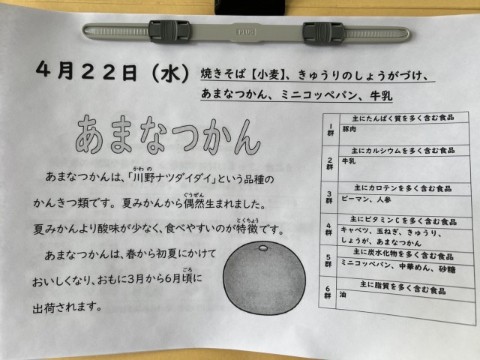 PLUS
４月２２日（水）焼きそば【小麦】、きゅうりのしょうがづけ、
あまなつかん、ミニコッペパン、牛乳
あまなつかん
かわ の
あまなつかんは、「川野ナツダイダイ」という品種の
ぐうぜん
かんきつ類です。夏みかんから偶然生まれました。
とくちょう
夏みかんより酸味が少なく、食べやすいのが特徴です。
あまなつかんは、春から初夏にかけて
ごろ
おいしくなり、おもに3月から6月頃に
出荷されます。
1群 主にたんぱく質を多く含む食品
豚肉
2群 主にカルシウムを多く含む食品
牛乳
3群 主にカロテンを多く含む食品
ピーマン、人参
4群 主にビタミンCを多く含む食品
キャベツ、玉ねぎ、きゅうり、
しょうが、あまなつかん
5群 主に炭水化物を多く含む食品
ミニコッペパン、中華めん、砂糖
6群 主に脂質を多く含む食品
油